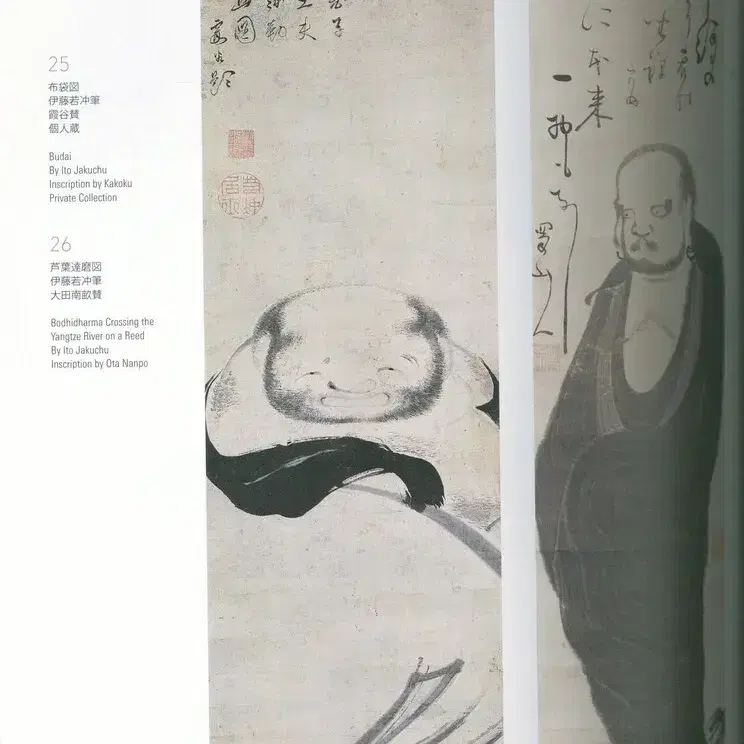 25
布袋図
伊藤若冲筆
霞谷賛
個人蔵
Budai
By Ito Jakuchu
Inscription by Kakoku
Private Collection
26
芦葉達磨図
伊藤若冲筆
大田南畝賛
Bodhidharma Crossing the
Yangtze River on a Reed
By Ito Jakuchu
Inscription by Ota Nanpo
霞谷題
に本来
一物もなし
蜀山人